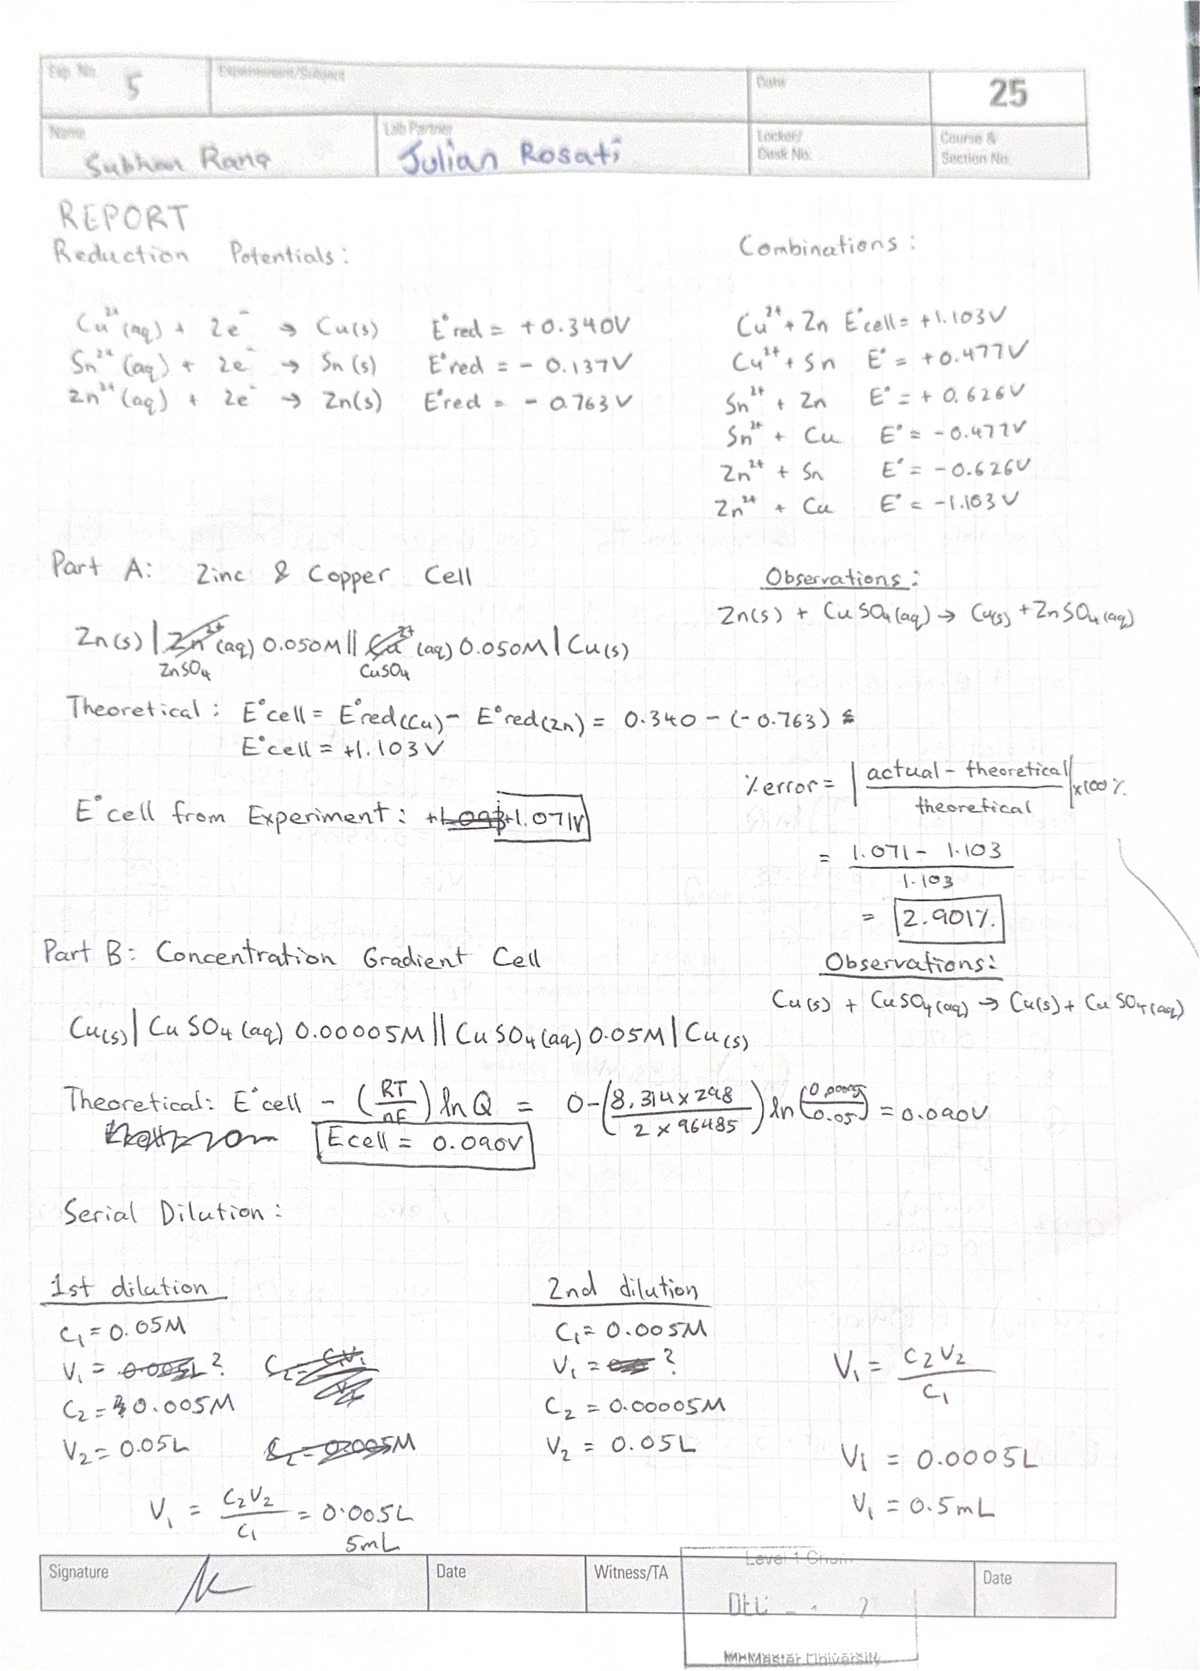 Exp. No. 5 Experiment/Subject Date 25
Name Subhan Rana Lab Partner Julian Rosati Locker/Desk No. Course & Section No.
REPORT
Reduction Potentials: Combinations:
Cu²⁺(aq) + 2e⁻ → Cu(s) E°red = +0.340V
Sn²⁺(aq) + 2e⁻ → Sn(s) E°red = - 0.137V
Zn²⁺(aq) + 2e⁻ → Zn(s) E°red = - 0.763V
Cu²⁺ + Zn E°cell = +1.103V
Cu²⁺ + Sn E° = +0.477V
Sn²⁺ + Zn E° = + 0.626V
Sn²⁺ + Cu E° = -0.477V
Zn²⁺ + Sn E° = -0.626V
Zn²⁺ + Cu E° = -1.103V
Part A: Zinc & Copper Cell
Zn(s) | Zn²⁺(aq) 0.050M || Cu²⁺(aq) 0.050M | Cu(s)
ZnSO₄ CuSO₄
Observations:
Zn(s) + CuSO₄(aq) → Cu(s) + ZnSO₄(aq)
Theoretical: E°cell = E°red(Cu) - E°red(Zn) = 0.340 - (-0.763)
E°cell = +1.103V
E°cell from Experiment: +1.071V
% error = | actual - theoretical / theoretical | x100%
= 1.071 - 1.103 / 1.103
= 2.901%
Part B: Concentration Gradient Cell
Observations:
Cu(s) + CuSO₄(aq) → Cu(s) + CuSO₄(aq)
Cu(s) | CuSO₄(aq) 0.00005M || CuSO₄(aq) 0.05M | Cu(s)
Theoretical: E°cell - (RT/nF) ln Q = 0-(8.314 x 298 / 2 x 96485) ln (0.00005/0.05) = 0.090V
Ecell = 0.090V
Serial Dilution:
1st dilution
C₁ = 0.05M
V₁ = 0.005L ?
C₂ = 0.005M
V₂ = 0.05L
V₁ = C₂V₂/C₁ = 0.005L
5mL
2nd dilution
C₁ = 0.005M
V₁ = ?
C₂ = 0.00005M
V₂ = 0.05L
V₁ = C₂V₂/C₁
V₁ = 0.0005L
V₁ = 0.5mL
Signature Date Witness/TA Date
Level 1 Chem
DEC
McMaster University